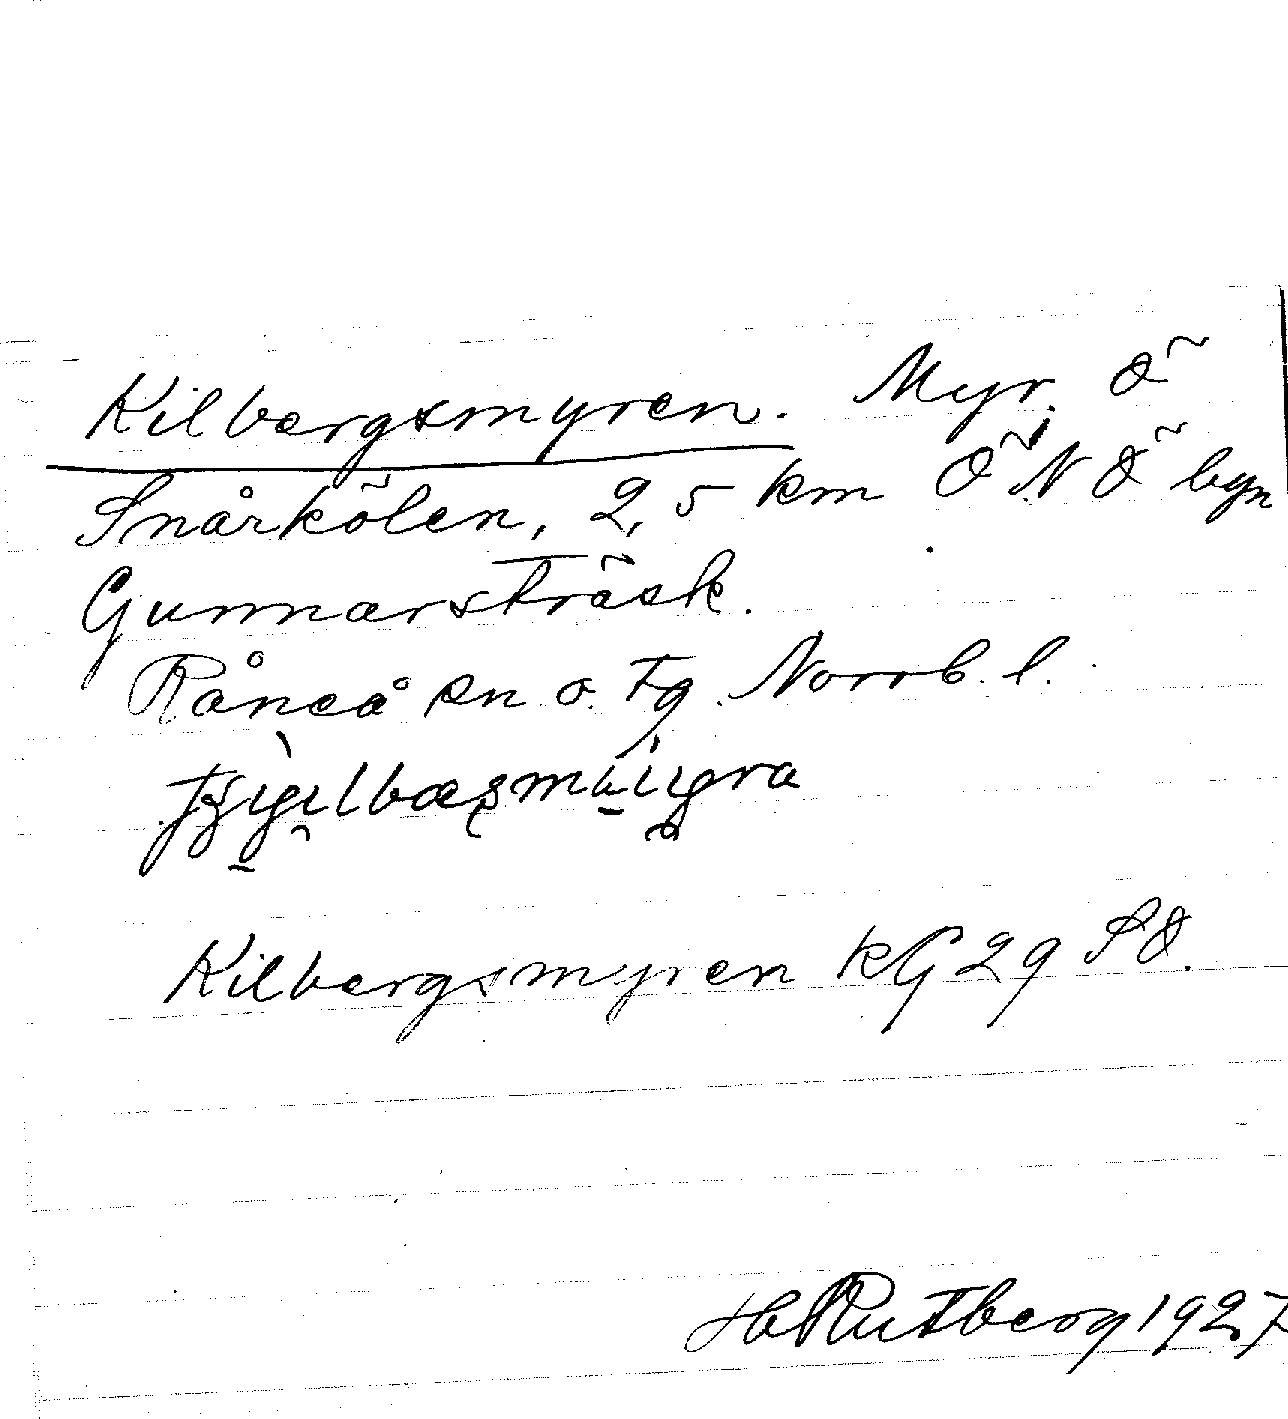 Kilbergsmyren. Myr, Ö
Snårkölen, 2,5 km ÖNÖ byn
Gunnarsträsk.
Råneå sn o. tg. Norrb. l.
Kilbergsmyren kG 29 SO.
H Rutberg 1927